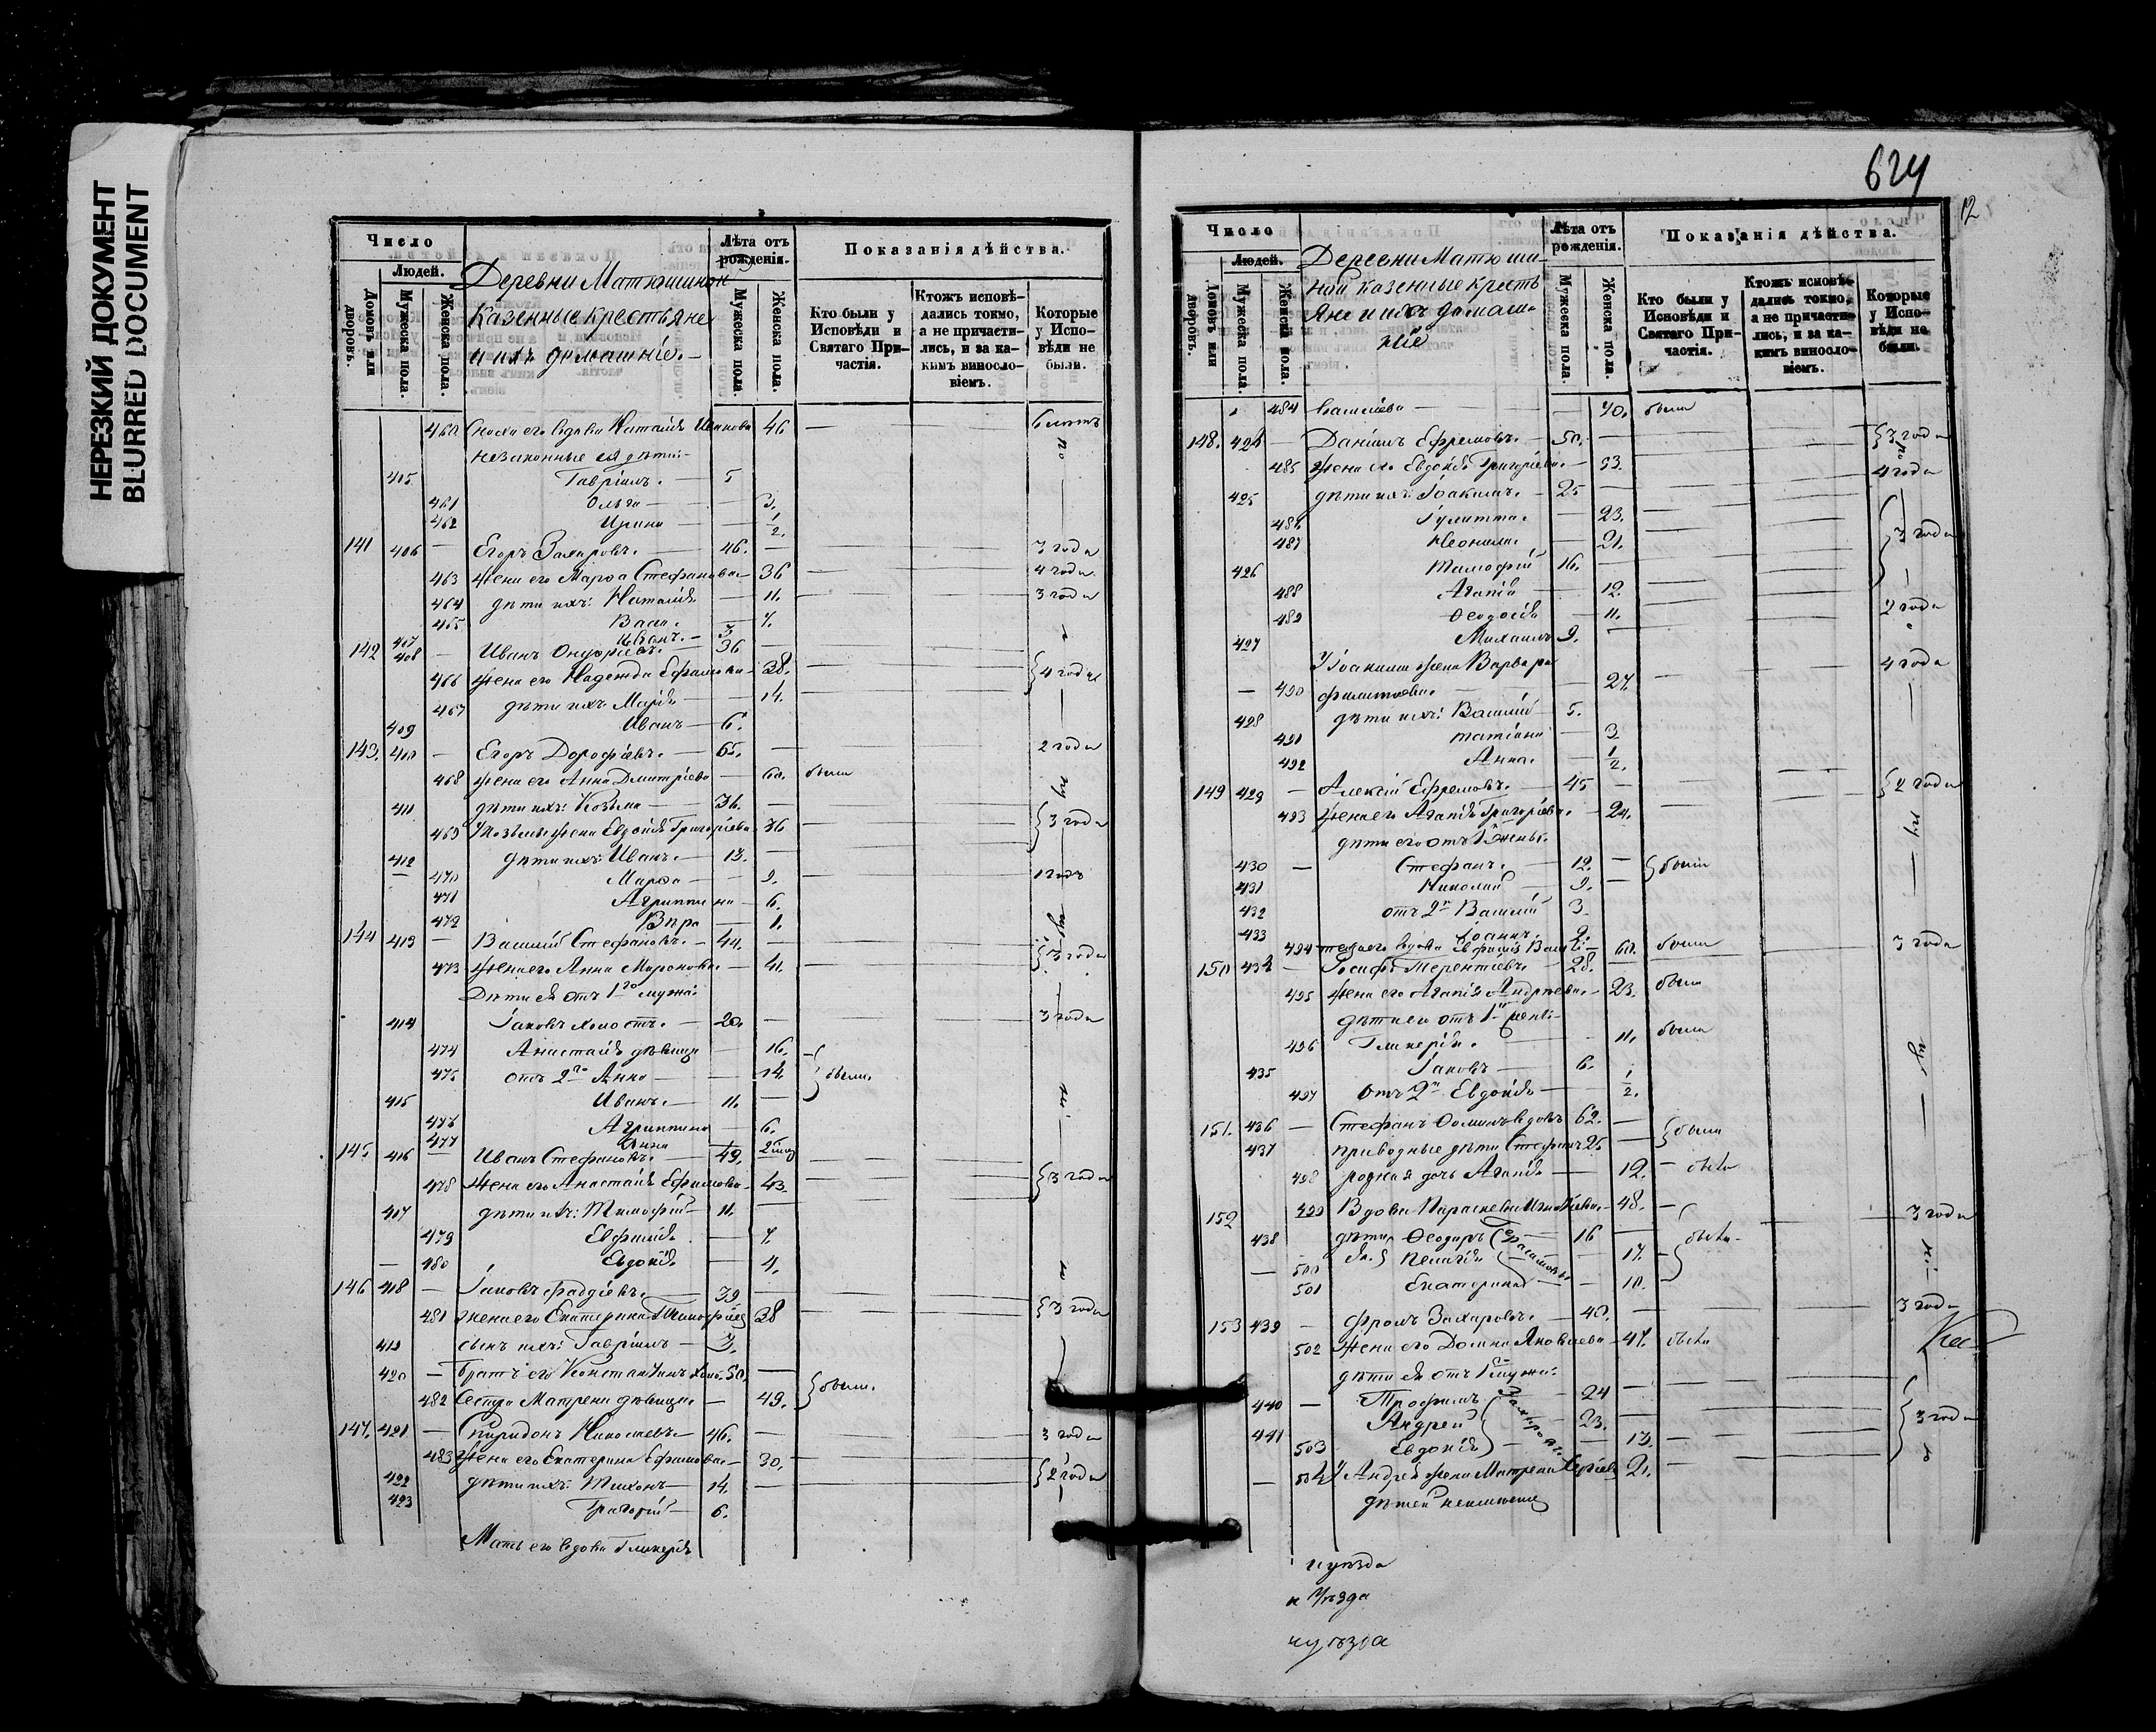 НЕРЕЗКИЙ ДОКУМЕНТ
BLURRED DOCUMENT
Число
Людей.
Домовъ или дворовъ.
Мужеска пола.
Женска пола.
Деревни Матюшиной
Казенные крестьяне
и ихъ домашніе.
Лѣта отъ рожденія.
Мужеска пола.
Женска пола.
Показанія дѣйства.
Кто были у Исповѣди и Святаго Причастія.
Ктожъ исповѣдались токмо, а не причастились, и за какимъ винословіемъ.
Которые у Исповѣди не были.
460. Сноха его вдова Наталія Иванова 46 — 6 лѣтъ
незаконные ея дѣти:
405 Гавріилъ. 5
461 Ольга — 3.
462 Ирина — 1/2.
141 406 — Егоръ Захаровъ. — 46. — 3 года
463 Жена его Марѳа Стефанова — 36 4 года
464 дѣти ихъ: Наталія — 11. 3 года
465 Васа. — 7.
407 Иванъ. — 3
142 408 — Иванъ Онуфріевъ. — 36 —
466 Жена его Надежда Ефимова — 38. 4 года
467 дѣти ихъ Марія — 14.
409 Иванъ — 6.
143. 410 — Егоръ Дорофіевъ. — 65. — 2 года
468 Жена его Анна Димитріева — 60. была
411 дѣти ихъ: Козьма — 36. —
469 У Козьмы жена Евдокія Григоріева 36 3 года
412 дѣти ихъ: Иванъ. — 13. —
470 Марѳа — 9. 1 годъ
471 Агриппина — 6.
472 Вѣра — 1.
144 413 — Василій Стефановъ. — 44. —
473 Жена его Анна Миронова — 41. 3 года
Дѣти ея отъ 1го мужа:
414 Іаковъ холостъ. — 20. — 3 года
474 Анастасія дѣвица — 16.
475 отъ 2го Анна — 14. были.
415 Иванъ. — 11. —
476 Агриппина — 6.
477 Анна
145 416 Иванъ Стефановъ. — 49.
478 Жена его Анастасія Ефимова — 43. 3 года
417 дѣти ихъ: Тимофей — 11. —
479 Евфимія — 7.
480 Евдокія — 4.
146 418 — Іаковъ Фаддѣевъ. — 39 —
481 жена его Екатерина Тимофіева 38 3 года
419 сынъ ихъ: Гавріилъ — 3.
420 — Братъ его Константинъ холо. 50. —
482 Сестра Матрена дѣвица — 49. были.
147. 421 — Спиридонъ Николаевъ — 46. — 3 года
483 Жена его Екатерина Ефимова — 30.
422 дѣти ихъ: Тихонъ — 14. 2 года
423 Григорій — 6.
Мать его вдова Гликерія
624
12
Число
Людей.
Домовъ или дворовъ.
Мужеска пола.
Женска пола.
Деревни Матюши-
ной казенные кресть
яне и ихъ домаш-
ніе
Лѣта отъ рожденія.
Мужеска пола.
Женска пола.
Показанія дѣйства.
Кто были у Исповѣди и Святаго Причастія.
Ктожъ исповѣдались токмо, а не причастились, и за какимъ винословіемъ.
Которые у Исповѣди не были.
484 Василіева — 70. была
148. 424 — Даніилъ Ефремовъ. — 50. — 3 года
485 Жена его Евдокія Григоріева — 53. 4 года
425 дѣти ихъ: Іоакимъ. — 25 —
486 Іулитта. — 23.
487 Неонила — 21. 3 года
426 Тимофей 16. —
488 Агапія — 12.
489 Ѳеодосія — 11. 2 года
427 Михаилъ 9. —
У Іоакима жена Варвара 4 года
— 490 Филиппова. — 27.
428 дѣти ихъ: Василій 5.
491 Татіана — 3
492 Анна. — 1/2.
149 429 — Алексій Ефремовъ. — 45 — 2 года
493 Жена его Агапія Григоріева. — 24.
дѣти его отъ 1й жены.
430 — Стефанъ. — 12. — были
431 Николай — 9. —
432 отъ 2й Василій 3.
433 Іоаннъ. 2.
494 теща его вдова Евфимія 60. была 3 года
150 434 — Іосифъ Терентіевъ — 28.
495 Жена его Агапія Андреева. — 23. была
дѣти его отъ 1й жены
496 Гликерія. — 11. была
435 Іаковъ — 6.
497 отъ 2й Евдокія — 1/2.
151. 436 — Стефанъ Ѳоминъ вдовъ 62. —
437 приводные дѣти Стефанъ 25 — были
498 родная дочь Агапія — 12. — была
152 499 Вдова Параскева — 48. — 3 года
438 дѣти Ѳеодоръ 16 —
— 500 ея Пелагія — 17. — были
501 Екатерина — 10.
153 439 — Фролъ Захаровъ. — 40. — 3 года
502 Жена его Домна Яковлева — 47. была
дѣти ея отъ 1го мужа:
440 — Трофимъ 24 —
441 Андрей 23. — 3 года
503 Евдокія — 13. —
— 504 У Андрея жена Матрена 21.
дѣтей неимѣющія
и уѣзда
и уѣзда
и уѣзда